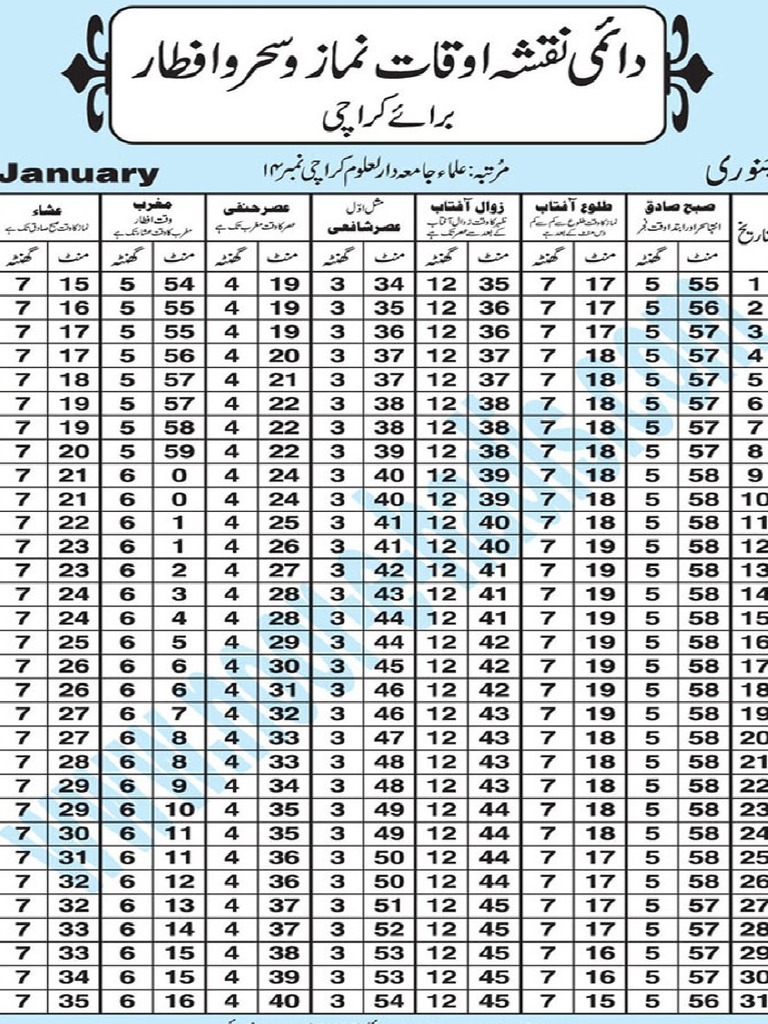 دائمی نقشہ اوقات نماز و سحر و افطار
برائے کراچی
January مُرتبہ: علماء جامعہ دارالعلوم کراچی نمبر ۱۴ جنوری
عشاء مغرب عصر حنفی مثل اوّل عصر شافعی زوال آفتاب طلوع آفتاب صبح صادق تاریخ
نماز کا وقت صبح صادق تک ہے وقت افطار مغرب کا وقت عشاء تک ہے عصر کا وقت مغرب تک ہے ظہر کا وقت زوال آفتاب کے بعد سے عصر تک ہے نماز کا وقت طلوع سے کم سے کم دس منٹ کے بعد ہے انتہا سحر اور ابتدا وقت فجر
گھنٹہ منٹ گھنٹہ منٹ گھنٹہ منٹ گھنٹہ منٹ گھنٹہ منٹ گھنٹہ منٹ گھنٹہ منٹ
7 15 5 54 4 19 3 34 12 35 7 17 5 55 1
7 16 5 55 4 19 3 35 12 36 7 17 5 56 2
7 17 5 55 4 19 3 36 12 36 7 17 5 57 3
7 17 5 56 4 20 3 37 12 37 7 18 5 57 4
7 18 5 57 4 21 3 37 12 37 7 18 5 57 5
7 19 5 57 4 22 3 38 12 38 7 18 5 57 6
7 19 5 58 4 22 3 38 12 38 7 18 5 57 7
7 20 5 59 4 22 3 39 12 38 7 18 5 57 8
7 21 6 0 4 24 3 40 12 39 7 18 5 58 9
7 21 6 0 4 24 3 40 12 39 7 18 5 58 10
7 22 6 1 4 25 3 41 12 40 7 18 5 58 11
7 23 6 1 4 26 3 41 12 40 7 19 5 58 12
7 23 6 2 4 27 3 42 12 41 7 19 5 58 13
7 24 6 3 4 28 3 43 12 41 7 19 5 58 14
7 24 6 4 4 28 3 44 12 41 7 19 5 58 15
7 25 6 5 4 29 3 44 12 42 7 19 5 58 16
7 26 6 6 4 30 3 45 12 42 7 19 5 58 17
7 26 6 6 4 31 3 46 12 42 7 19 5 58 18
7 27 6 7 4 32 3 46 12 43 7 19 5 58 19
7 27 6 8 4 33 3 47 12 43 7 18 5 58 20
7 28 6 8 4 33 3 48 12 43 7 18 5 58 21
7 29 6 9 4 34 3 48 12 43 7 18 5 58 22
7 29 6 10 4 35 3 49 12 44 7 18 5 58 23
7 30 6 11 4 35 3 49 12 44 7 18 5 58 24
7 31 6 11 4 36 3 50 12 44 7 17 5 58 25
7 32 6 12 4 36 3 50 12 44 7 17 5 58 26
7 32 6 13 4 37 3 51 12 45 7 17 5 57 27
7 33 6 14 4 37 3 52 12 45 7 17 5 57 28
7 33 6 15 4 38 3 53 12 45 7 16 5 57 29
7 34 6 15 4 39 3 53 12 45 7 16 5 57 30
7 35 6 16 4 40 3 54 12 45 7 15 5 56 31